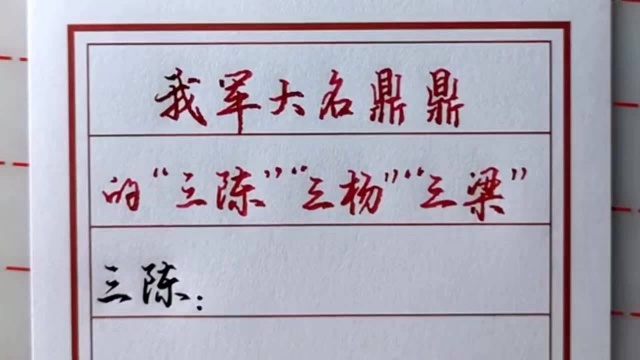 我军大名鼎鼎
的“三陈”“三杨”“三梁”
三陈：